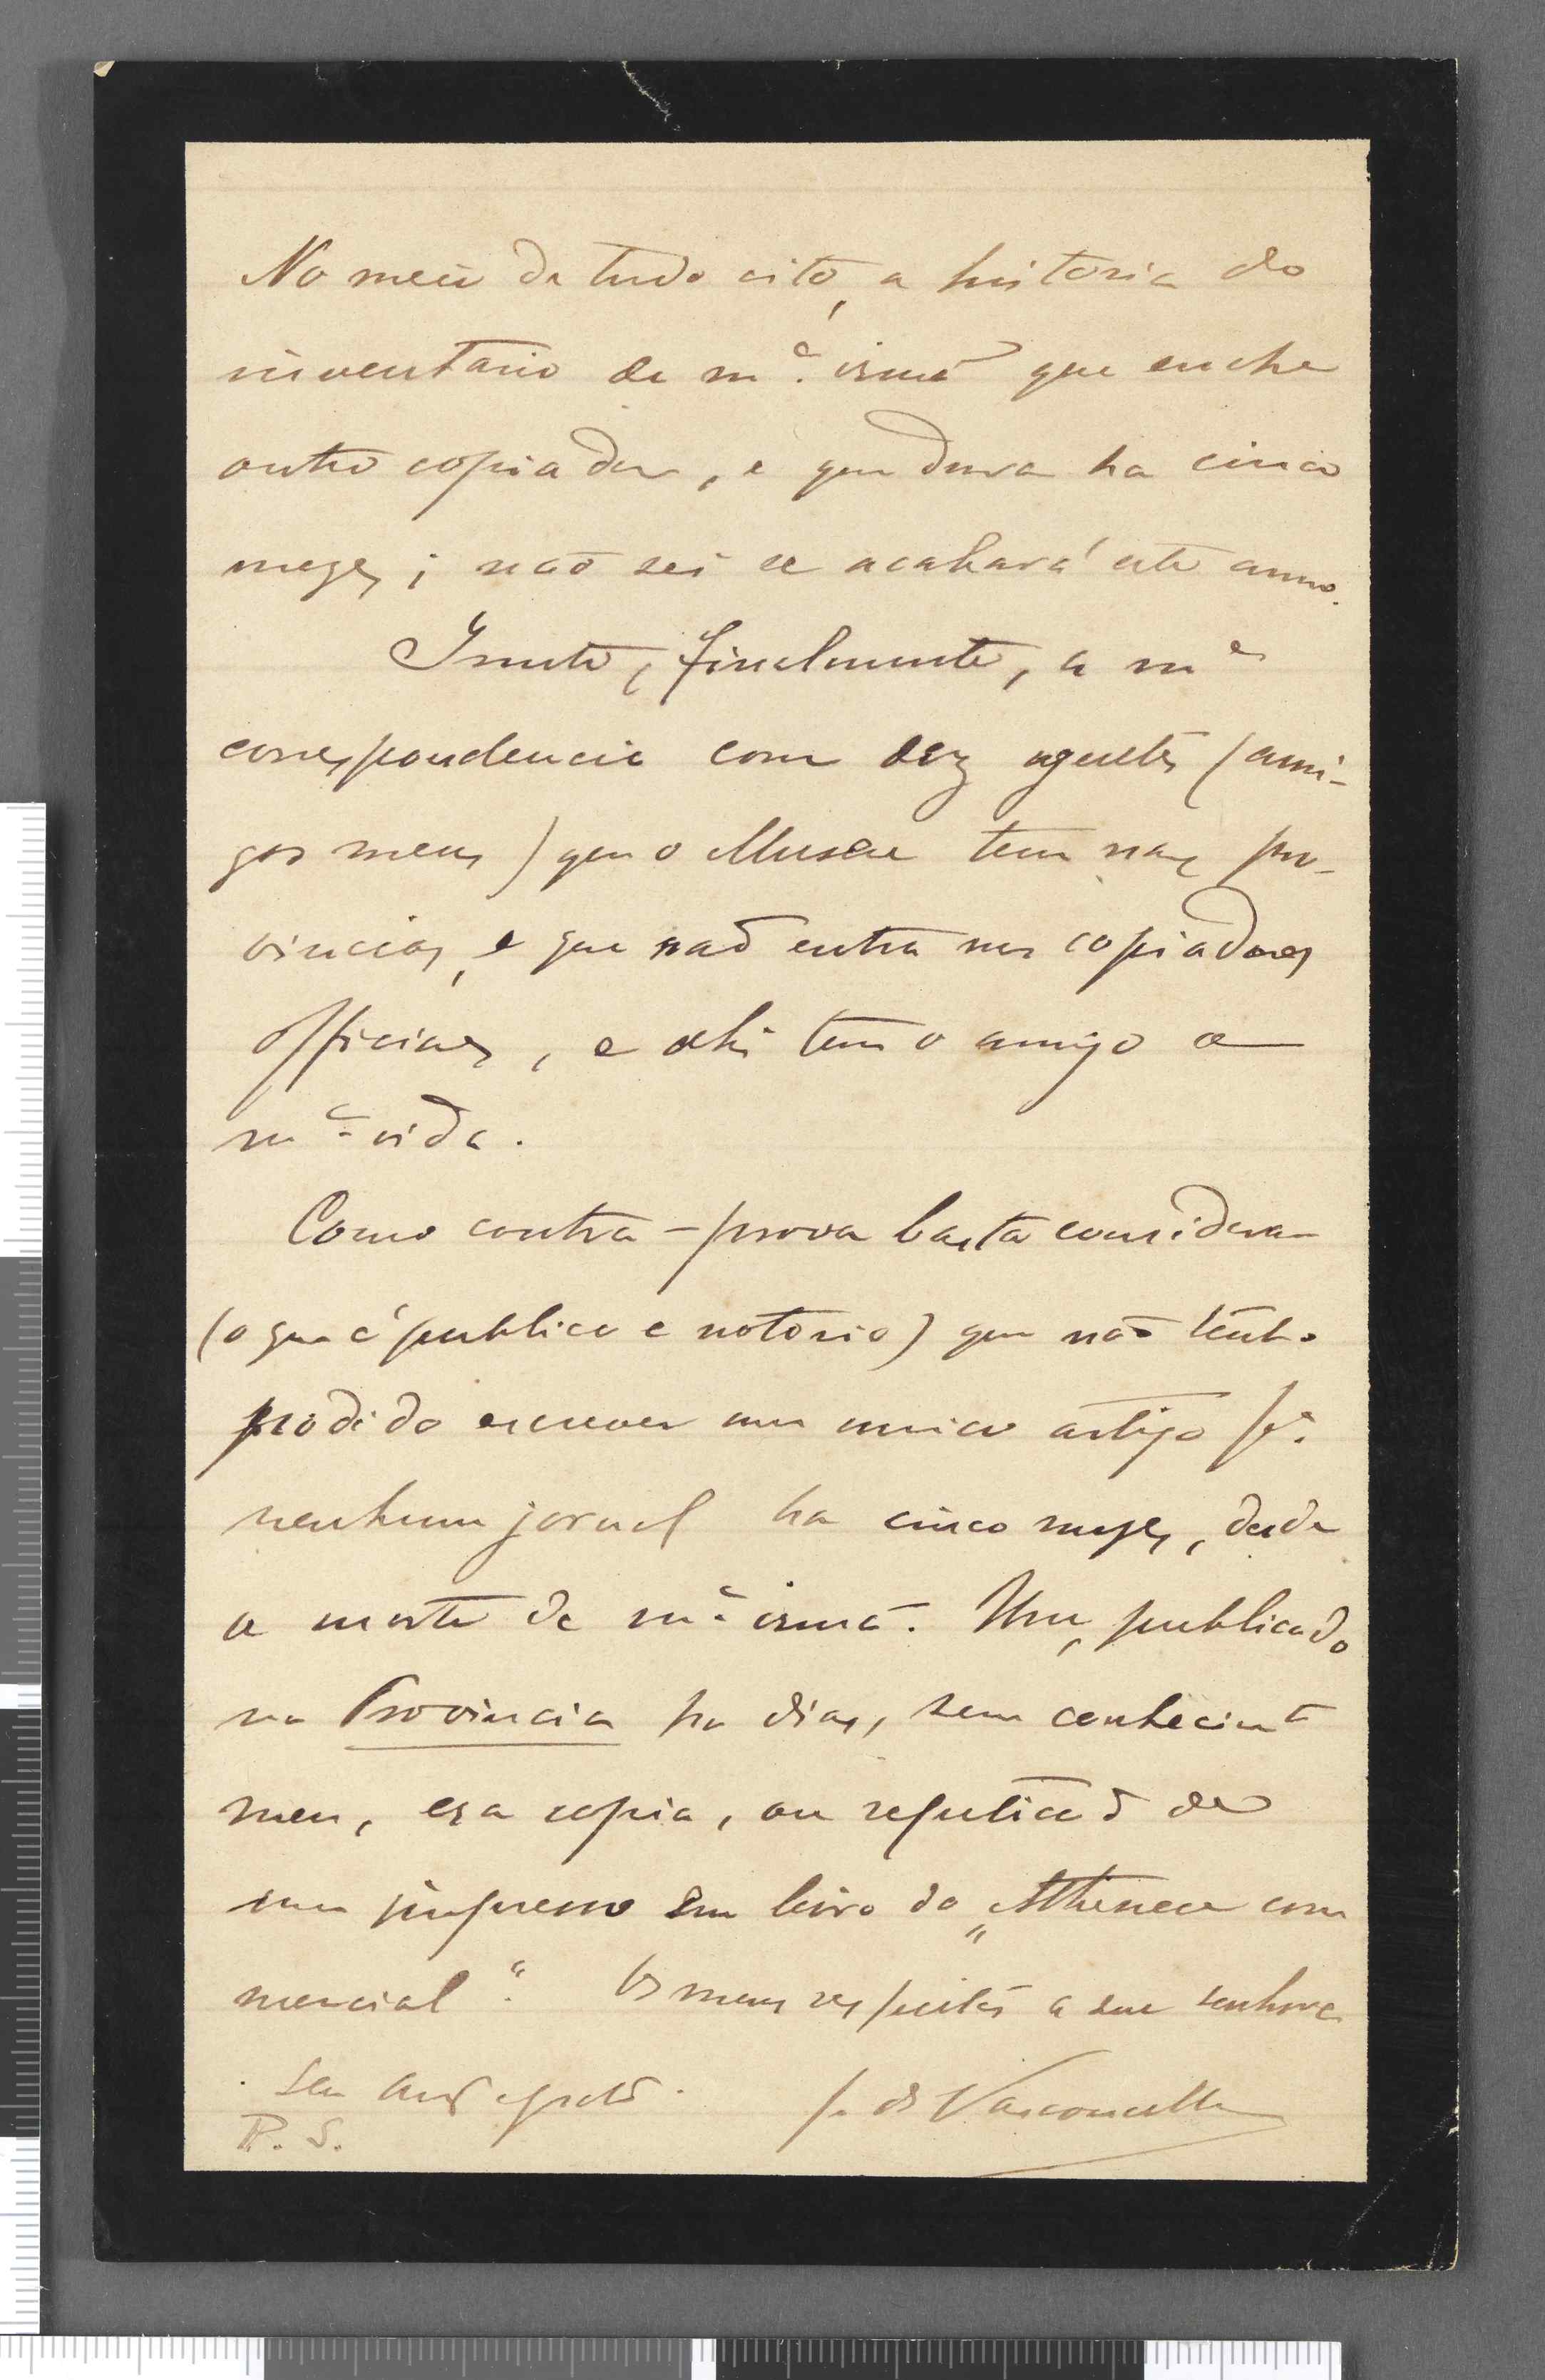 No meio de tudo isto, a historia do
inventario de m.ª irmã que enche
outro copiador, e que dura ha cinco
mezes; não sei se acabará este anno.
Junte, finalmente, a m.ª
correspondencia com dez agentes (ami-
gos meus) que o Museu tem nas pro-
vincias, e que não entra nos copiadores
officiaes, e ahi tem o amigo a
m.ª vida.
Como contra-prova basta considerar
(o que é publico e notorio) que não tenho
podido escrever um unico artigo p.ª
nenhum jornal ha cinco mezes, desde
a morte de m.ª irmã. Um, publicado
na Provincia ha dias, sem conhecim.to
meu, era copia, ou repetição de
um impresso em livro do „Atheneu com
mercial“. Os meus respeitos a sua senhora
Seu am.o e grato. J. de Vasconcellos
P. S.